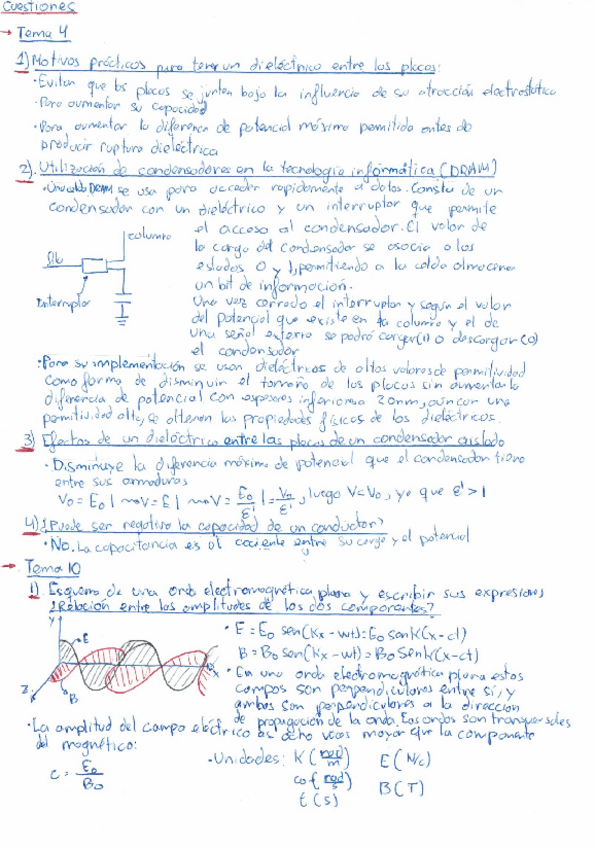 Cuestiones
→ Tema 4
1) Motivos prácticos para tener un dieléctrico entre las placas:
· Evitan que las placas se junten bajo la influencia de su atracción electrostática
· Para aumentar su capacidad
· Para aumentar la diferencia de potencial máximo permitida antes de
producir ruptura dieléctrica
2) Utilización de condensadores en la tecnología informática (DRAM)
· Una celda DRAM se usa para acceder rapidamente a datos. Consta de un
condensador con un dieléctrico y un interruptor que permite
el acceso al condensador. El valor de
la carga del condensador se asocia a los
estados 0 y 1, permitiendo a la celda almacenar
un bit de información.
Una vez cerrado el interruptor y según el valor
del potencial que existe en la columna y el de
una señal externa se podrá cargar(1) o descargar(0)
el condensador
columna
fila
Interruptor
· Para su implementación se usan dieléctricos de altos valores de permitividad
como forma de disminuir el tamaño de las placas sin aumentar la
diferencia de potencial con espesores inferiores a 20nm, aún con una
permitividad alta, se alteran las propiedades físicas de los dieléctricos.
3) Efectos de un dieléctrico entre las placas de un condensador aislado
· Disminuye la diferencia máxima de potencial que el condensador tiene
entre sus armaduras
V₀ = E₀ l → V = E l → V = E₀/ε' l = V₀/ε', luego V<V₀, ya que ε' > 1
4) ¿Puede ser negativa la capacidad de un conductor?
· No. La capacitancia es el cociente entre su carga y el potencial
→ Tema 10
1) Esquema de una onda electromagnética plana y escribir sus expresiones
¿Relación entre las amplitudes de los dos componentes?
Y E B Z
· E = E₀ sen(Kx - wt) = E₀ Sen k(x - ct)
B = B₀ sen(Kx - wt) = B₀ Sen k(x - ct)
· En una onda electromagnética plana estos
campos son perpendiculares entre sí, y
ambos son perpendiculares a la dirección
de propagación de la onda. Las ondas son transversales
· La amplitud del campo eléctrico es ocho veces mayor que la componente
del magnético:
c = E₀/B₀
· Unidades: K (rad/m) E (N/c)
ω (rad/s) B (T)
t (s)